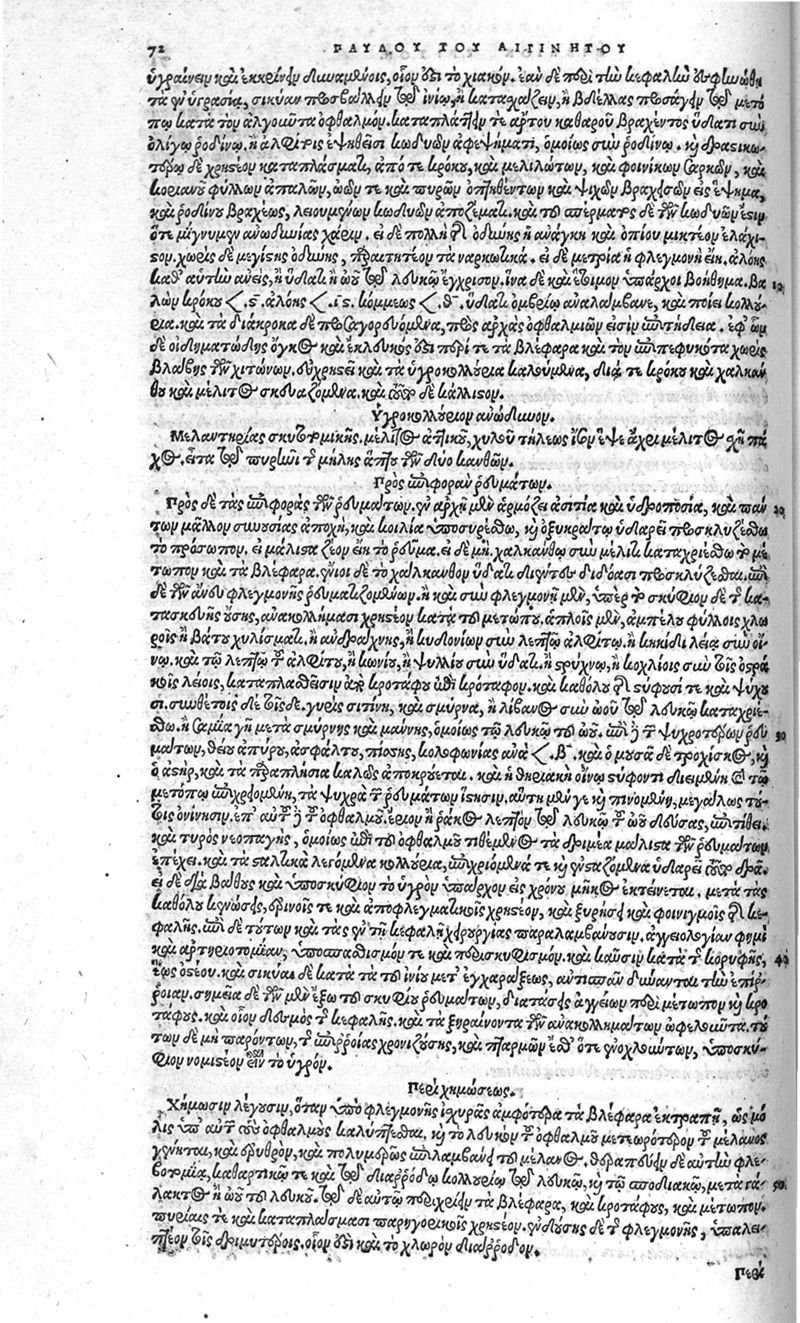 72 ΠΑΥΛΟΥ ΤΟΥ ΑΙΓΙΝΗΤΟΥ
ὑγραίνειν καὶ ἐκκρίνειν δυναμένοις, οἷον ἐστὶ τὸ χιακόν. ἐὰν δὲ περὶ τὴν κεφαλὴν
τὰ ἐν ὑγρασία, σικύαν προσβάλλειν τῷ ἰνίῳ, ἢ καταχάζειν, ἢ βδέλλας προσάγειν τῷ μετώ
πῳ κατὰ τὸν ἀλγοῦντα ὀφθαλμόν. καταπλάττειν τε ἄρτου καθαροῦ βραχέντος ὕδατι σὺν
ὀλίγῳ ῥοδίνῳ. ἢ ἀλφίτοις ἑψηθεῖσι κωδυῶν ἀφεψήματι, ὁμοίως σὺν ῥοδίνῳ. καὶ δραστικω
τέρῳ δὲ χρηστέον καταπλάσματι, ἀπό τε κρόκου, καὶ μελιλώτων, καὶ φοινίκων σαρκῶν, καὶ
κοριάνου φύλλων ἁπαλῶν, ὠῶν τε καὶ πυρῶν ὀπτηθέντων καὶ ψιχῶν βραχεισῶν εἰς ἕψημα,
καὶ ῥοδίνου βραχέως, λειουμένων κωδυῶν ἀποζέματι. καὶ τοῦ σπέρματος δὲ τῶν κωδυῶν ἔστιν
ὅτε μίγνυμεν ἀνωδυνίας χάριν. εἰ δὲ πολλὴ τῆς ὀδύνης ἢ ἀνάγκη καὶ ὀπίου μικτέον ἐλάχι
στον. χωρὶς δὲ μεγίστης ὀδύνης, παραιτητέον τὰ ναρκωτικά. εἰ δὲ μετρία ἡ φλεγμονὴ εἴη. ἀλόης
καθ' αὑτὴν ἀνεὶς, ἢ ὕδατι ἢ ὠοῦ τῷ λευκῷ ἔγχρισον. ἵνα δὲ καὶ ἕτοιμον ὑπάρχοι βοήθημα. βα 10
λὼν κρόκου <. ϛ. ἀλόης <. ιϛ. κόμμεως <. θ. ὕδατι ὀμβρίῳ ἀναλάμβανε, καὶ ποίει κολλύ
ρια. καὶ τὰ διάκροκα δὲ προσαγορευόμενα, πρὸς ἀρχὰς ὀφθαλμιῶν εἰσὶν ἐπιτήδεια. ἐφ' ὧν
δὲ οἰδηματώδης ὄγκος καὶ ἔκλευκός ἐστι περί τε τὰ βλέφαρα καὶ τὸν ἐπιπεφυκότα χωρὶς
βλάβης τῶν χιτώνων, εὐχρηστεῖ καὶ τὰ ὑγροκολλούρια καλούμενα, διά τε κρόκου καὶ χαλκάν
θου καὶ μέλιτος σκευαζόμενα. καὶ τοῦτο δὲ κάλλιστον.
Ὑγροκολλούριον ἀνώδυνον.
Μελαντηρίας σκυτομικῆς. μέλιτος ἀττικοῦ, χυλοῦ τήλεως ἴσον ἕψε ἄχρι μέλιτος σχῇ πά
χος. εἶτα τῷ πυρῆνι τῆς μήλης ἅπτου τῶν δύο κανθῶν.
Πρὸς ἐπιφορὰν ῥευμάτων.
Πρὸς δὲ τὰς ἐπιφορὰς τῶν ῥευμάτων. ἐν ἀρχῇ μὲν ἁρμόζει ἀσιτία καὶ ὑδροποσία, καὶ πάν 20
των μᾶλλον συνουσίας ἀποχὴ, καὶ κοιλία ὑποσυρέσθω, καὶ ὀξυκράτῳ ὑδαρεῖ προσκλυζέσθω
τὸ πρόσωπον. εἰ μάλιστα ζέον εἴη τὸ ῥεῦμα. εἰ δὲ μὴ. χαλκάνθῳ σὺν μέλιτι καταχριέσθω τὸ μέ
τωπον καὶ τὰ βλέφαρα. ἔνιοι δὲ τὸ χάλκανθον ὕδατι διέντες διδόασι προσκλύζεσθαι. ἐπὶ
δὲ τῶν ἄνευ φλεγμονῆς ῥευματιζομένων. καὶ σὺν φλεγμονῇ μὲν, ὑπὲρ τὸ σκύφιον δὲ τῆς κα
τασκευῆς οὔσης, ἀνακολλήμασι χρηστέον κατὰ τοῦ μετώπου. ἁπλοῖς μὲν, ἀμπέλου φύλλοις χλω
ροῖς ἢ βάτου χυλίσματι. ἢ ἀνδράχνης, ἢ κυδονίων σὺν λεπτῷ ἀλφίτῳ. ἢ κηκίδι λείᾳ σὺν οἴ
νῳ. καὶ τῷ λεπτῷ τοῦ ἀλφίτου, ἢ κωνίῳ, ἢ ψυλλίου σὺν ὕδατι. ἢ στρύχνῳ, ἢ κοχλίοις σὺν τοῖς ὀστρά
κοις λείοις, καταπλασθεῖσιν ἀπὸ κροτάφου ἐπὶ κρόταφον. καὶ καθόλου τοῖς στύφουσί τε καὶ ψύχου
σι. συνθέτοις δὲ τοῖσδε. γύρεις σιτίνη, καὶ σμύρνα, ἢ λίβανος σὺν ὠοῦ τῷ λευκῷ καταχριέ
σθω. ἢ σαμία γῆ μετὰ σμύρνης καὶ μάννης, ὁμοίως τῷ λευκῷ τοῦ ὠοῦ. ἐπὶ δὲ τῶν ψυχροτέρων ῥευ 30
μάτων, θείου ἀπύρου, ἀσφάλτου, πίσσης, κολοφωνίας ἀνὰ <. β. καὶ ὁ μούσα δὲ τροχίσκος, καὶ
ὁ ἀστὴρ, καὶ τὰ παραπλήσια καλῶς ἀποκρούεται. καὶ ἡ θηριακὴ οἴνῳ στύφοντι διειμένη καὶ τῷ
μετώπῳ ἐπιχριομένη, τὰ ψυχρὰ τῶν ῥευμάτων ἵστησιν. αὕτη μέν γε καὶ πινομένη, μεγάλως τού
τοις ὀνίνησιν. ἐπ' αὐτοῦ δὲ τοῦ ὀφθαλμοῦ. ἔριον ἢ ῥάκος λεπτὸν τῷ λευκῷ τοῦ ὠοῦ δεύσας, ἐπιτίθει.
καὶ τυρὸς νεοπαγὴς, ὁμοίως ἐπὶ τοῦ ὀφθαλμοῦ τιθέμενος τὰ δριμέα μάλιστα τῶν ῥευμάτων
ἐπέχει. καὶ τὰ σταλτικὰ λεγόμενα κολλούρια, ἐπιχριόμενά τε καὶ ἐνσταζόμενα ὑδαρεῖ τοῦτο δρᾷ.
εἰ δὲ διὰ βάθους καὶ ὑποσκύφιον τὸ ὑγρὸν ὑπάρχον εἰς χρόνου μῆκος ἐκτείνεται. μετὰ τὰς
καθόλου κενώσεις, ἐρρίνοις τε καὶ ἀποφλεγματικοῖς χρηστέον, καὶ ξυρήσει καὶ φοινιγμοῖς τῆς κε
φαλῆς. ἐπὶ δὲ τούτων καὶ τὰς ἐν τῇ κεφαλῇ χειρουργίας παραλαμβάνουσιν. ἀγγειολογίαν φημὶ
καὶ ἀρτηριοτομίαν, ὑποσπαθισμόν τε καὶ περισκυφισμόν. καὶ καῦσιν κατὰ τῆς κορυφῆς, 40
ἕως ὀστέου. καὶ σικύαι δὲ κατὰ τοῦ ἰνίου μετ' ἐγχαράξεως, ἀντισπᾶν δύνανται τὴν ἐπίρ
ροιαν. σημεῖα δὲ τῶν μὲν ἔξω τοῦ σκυφίου ῥευμάτων, διατάσεις ἀγγείων περὶ μέτωπον καὶ κρο
τάφους. καὶ οἷον δεσμὸς τῆς κεφαλῆς. καὶ τὰ ξηραίνοντα τῶν ἀνακολλημάτων ὠφελοῦντα. τού
των δὲ μὴ παρόντων, τῆς ἐπιρροίας χρονιζούσης, καὶ πταρμῶν ἔσθ' ὅτε ἐνοχλούντων, ὑποσκύ
φιον νομιστέον εἶναι τὸ ὑγρόν.
Περὶ χημώσεως.
Χήμωσιν λέγουσιν, ὅταν ὑπὸ φλεγμονῆς ἰσχυρᾶς ἀμφότερα τὰ βλέφαρα ἐκτραπῇ, ὡς μό
λις ὑπ' αὐτῶν τοὺς ὀφθαλμοὺς καλύπτεσθαι, καὶ τὸ λευκὸν τοῦ ὀφθαλμοῦ μετεωρότερον τοῦ μέλανος
γένηται, καὶ ἐρυθρὸν, καὶ πολυμερῶς ἐπιλαμβάνει τοῦ μέλανος. θεραπεύειν δὲ αὐτὴν φλε
βοτομίᾳ, καθαρτικῷ τε καὶ τῷ διαρρόδῳ κολλυρίῳ τῷ λευκῷ, καὶ τῷ σποδιακῷ, μετὰ γά 50
λακτος ἢ ὠοῦ τοῦ λευκοῦ. τῷ δὲ αὐτῷ περιχρίειν τὰ βλέφαρα, καὶ κροτάφους, καὶ μέτωπον.
πυρίαις τε καὶ καταπλάσμασι παρηγορικοῖς χρηστέον. ἐνδούσης δὲ τῆς φλεγμονῆς, ὑπαλει
πτέον τοῖς δριμυτέροις. οἷόν ἐστι καὶ τὸ χλωρὸν διάρροδον.
Περὶ